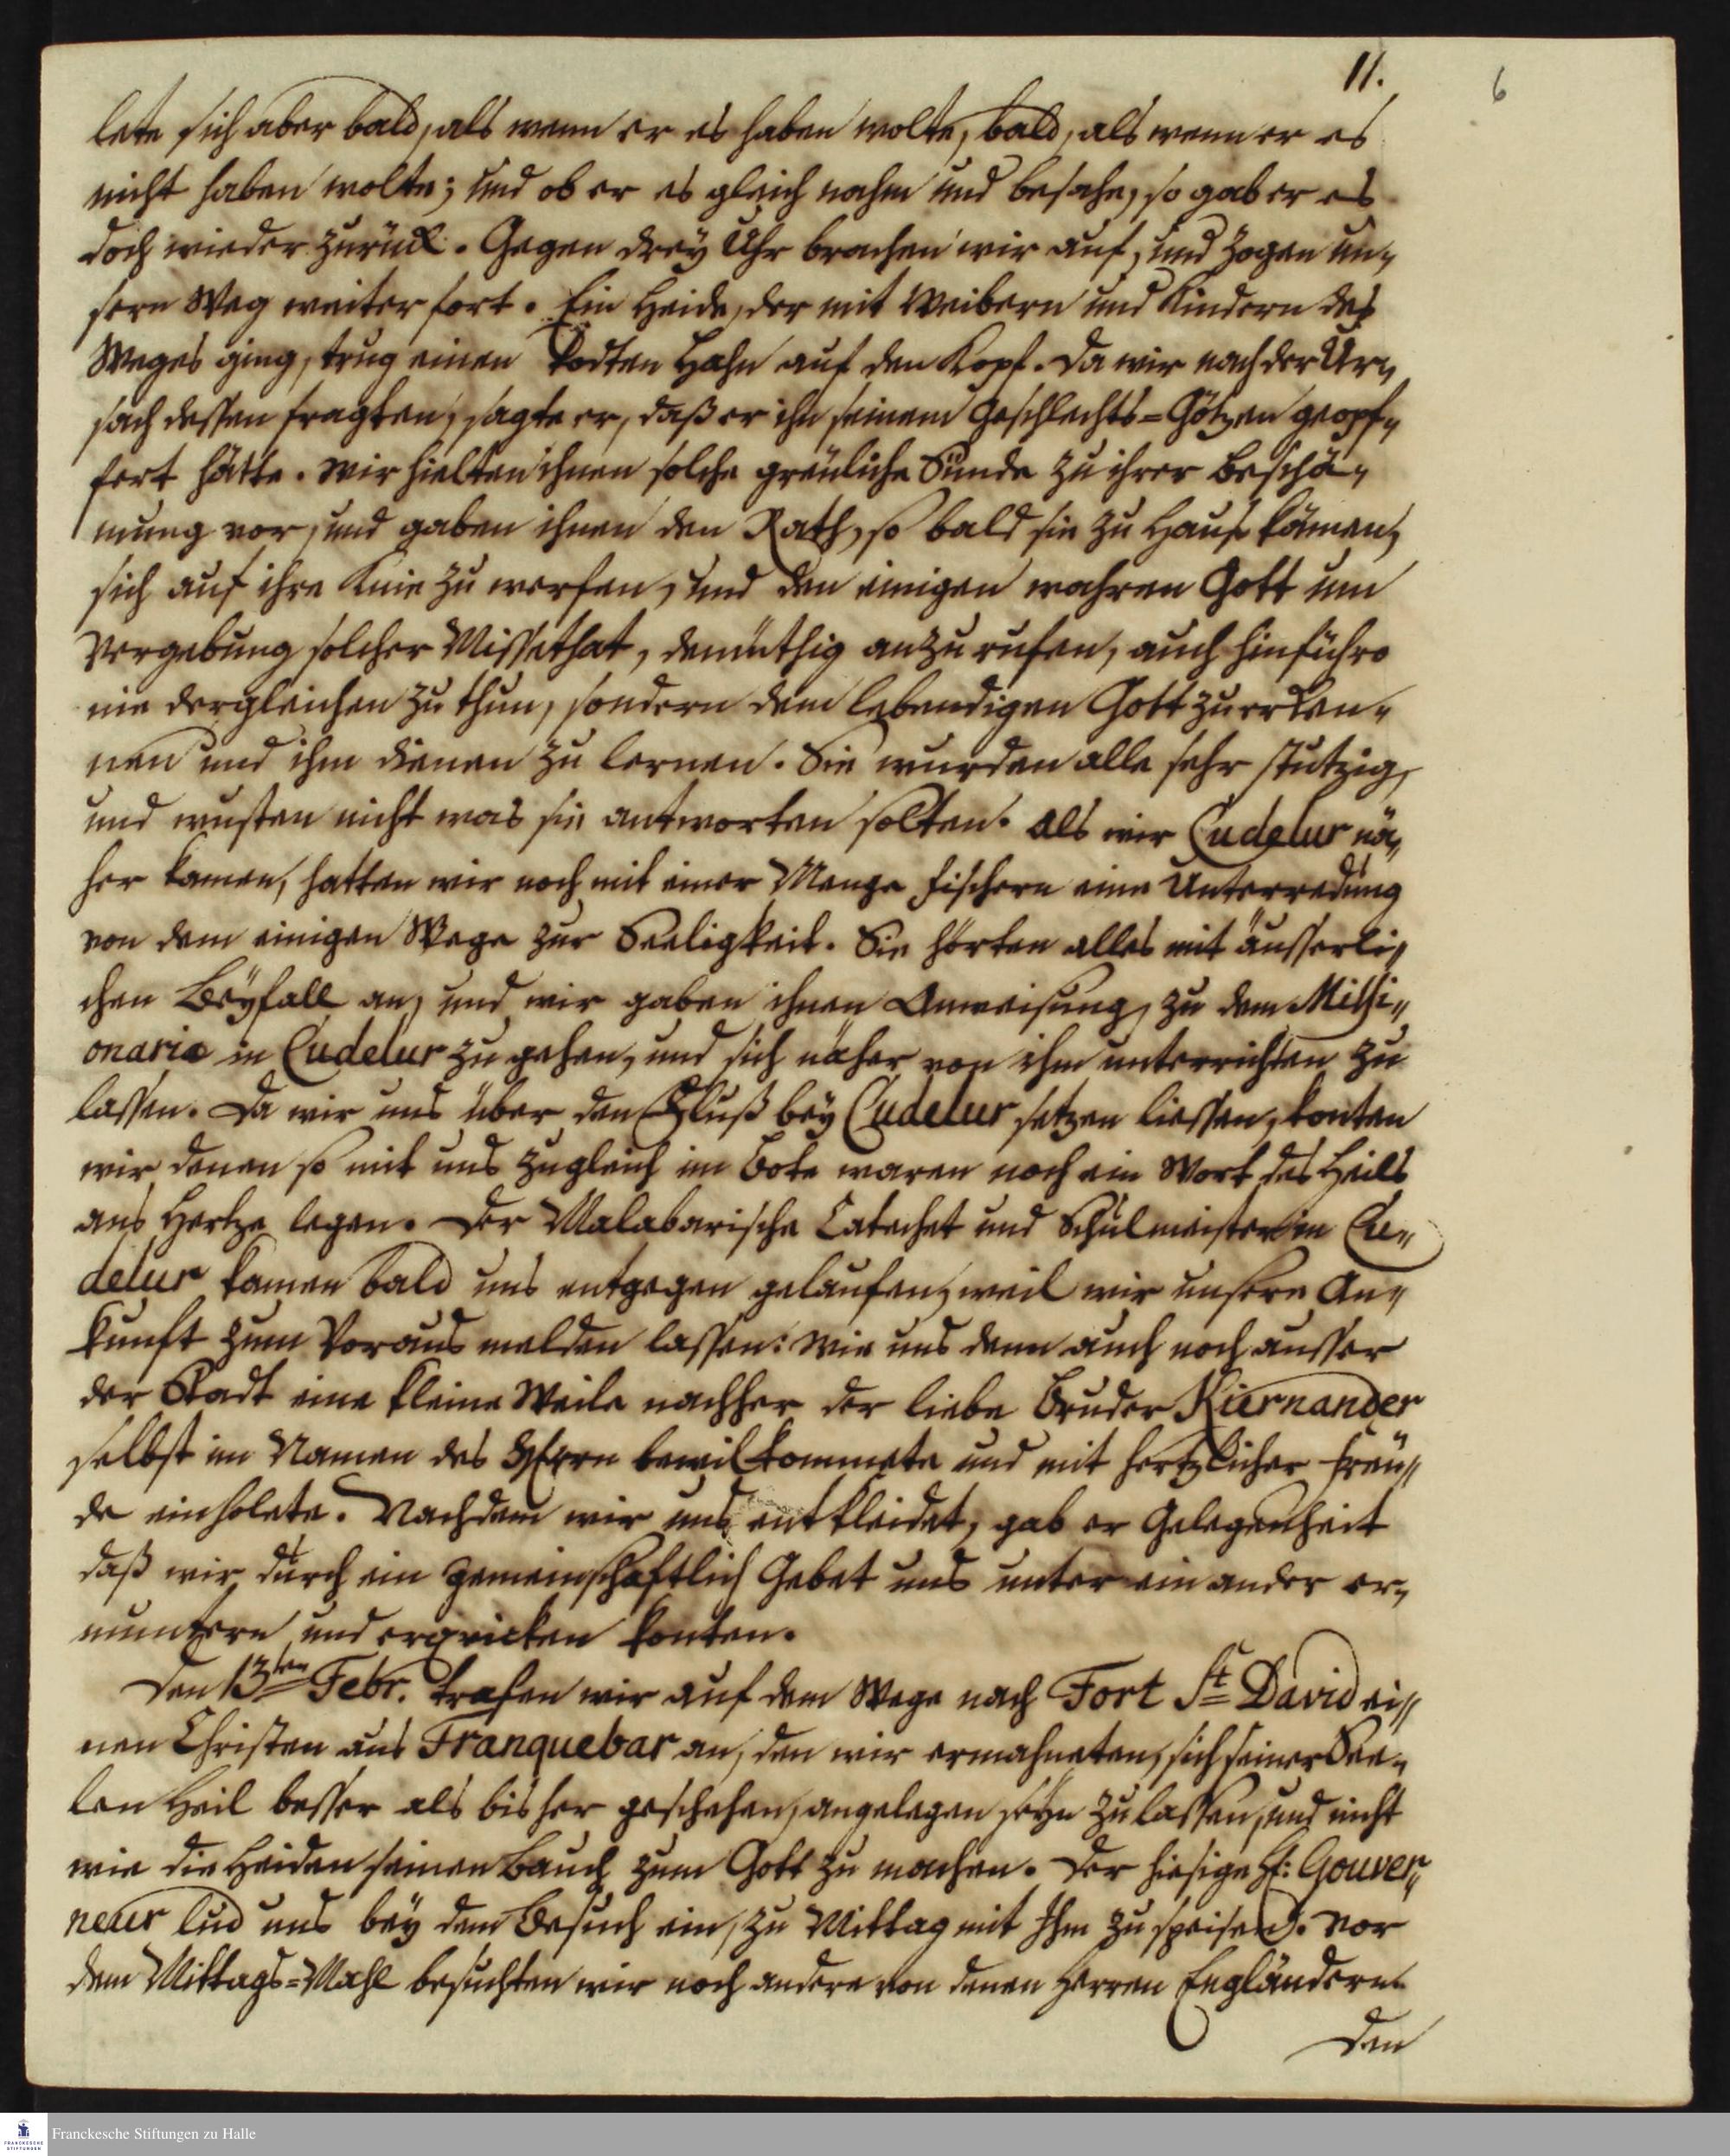 11.
6
lete sich aber bald, als wenn er es haben wolte, bald, als wenn er es
nicht haben wolte; und ob er es gleich nahm und besahe, so gab er es
doch wieder zurück. Gegen drey Uhr brachen wir auf, und zogen un-
sern Weg weiter fort. Ein Heide, der mit Weibern und Kindern des
Weges ging, trug einen todten Hahn auf den Kopf. Da wir nach der Ur-
sach dessen fragten, sagte er, daß er ihn seinem Geschlechts=Götzen geopf-
fert hätte. Wir hielten ihnen solche greuliche Sünde zu ihrer Beschä-
mung vor, und gaben ihnen den Rath, so bald sie zu Hause kämen,
sich auf ihre Knie zu werfen, und den einigen wahren Gott um
Vergebung solcher Missethat, demüthig anzurufen, auch hinführo
nie dergleichen zu thun, sondern dem lebendigen Gott zu erken-
nen und ihm dienen zu lernen. Sie wurden alle sehr stutzig,
und wusten nicht was sie antworten solten. Als wir Cudelur nä-
her kamen, hatten wir noch mit einer Menge Fischern eine Unterredung
von dem einigen Wege zur Seeligkeit. Sie hörten alles mit äusserli-
chen Beyfall an, und wir gaben ihnen Anweisung, zu dem Missi-
onario in Cudelur zu gehen, und sich näher von ihm unterrichten zu
lassen. Da wir uns über den Fluß bey Cudelur setzen liessen, konten
wir denen so mit uns zugleich im Bote waren noch ein Wort des Heils
ans Hertze legen. Der Malabarische Catechet und Schulmeister in Cu-
delur kamen bald uns entgegen gelaufen, weil wir unsere An-
kunft zum Voraus melden lassen: Wie uns denn auch noch ausser
der Stadt eine kleine Weile nachher der liebe Bruder Kiernander
selbst im Namen des HErrn bewilkommete und mit hertzlicher Freu-
de einholete. Nachdem wir uns entkleidet, gab er Gelegenheit
daß wir durch ein gemeinschaftlich Gebet uns unter einander er-
muntern und erqvicken konten.
Den 13ten Febr. trafen wir auf dem Wege nach Fort St David ei-
nen Christen aus Tranquebar an, den wir ermahneten, sich seiner See-
len Heil besser als bisher geschehen, angelegen seyn zu lassen, und nicht
wie die Heiden seinen Bauch zum Gott zu machen. Der hiesige H: Gouver-
neur lud uns bey dem Besuch ein, zu Mittag mit Ihm zu speisen. Vor
dem Mittags=Mahl besuchten wir noch andere von denen Herren Engländern.
Den
Franckesche Stiftungen zu Halle
FRANCKESCHE
STIFTUNGEN